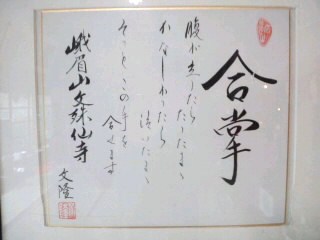 合掌
腹が立ったら たったまゝ
かなしかったら 泣いたまゝ
そっとこの手を 合せます
峨眉山文殊仙寺
文隆